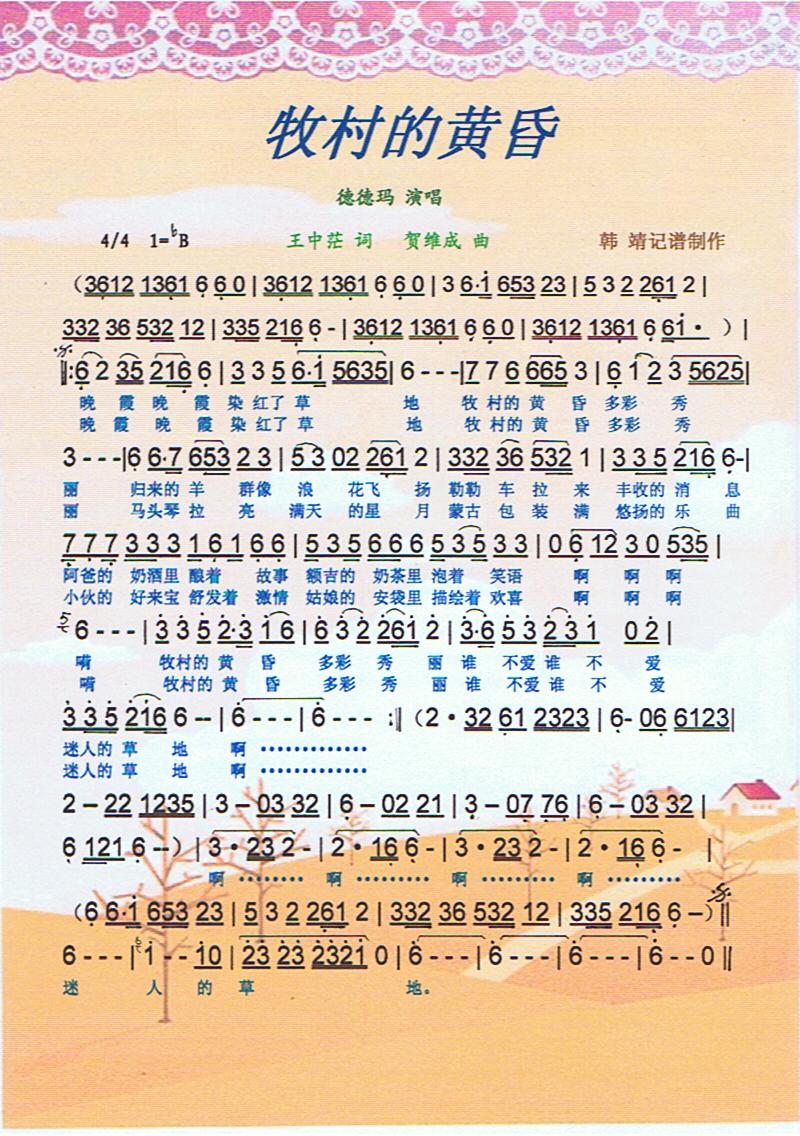 牧村的黄昏
德德玛 演唱
4/4 1=♭B 王中茫 词 贺维成 曲 韩 靖记谱制作
（3612 1361 6 6 0 | 3612 1361 6 6 0 | 3 6·1 653 23 | 5 3 2 261 2 |
332 36 532 12 | 335 216 6 - | 3612 1361 6 6 0 | 3612 1361 6 61· ）|
‖: 6 2 35 216 6 | 3 3 5 6·1 5635 | 6 - - - | 7 7 6 665 3 | 6 1 2 3 5625 |
晚 霞 晚 霞 染 红了 草 地 牧 村的 黄 昏 多彩 秀
晚 霞 晚 霞 染 红了 草 地 牧 村的 黄 昏 多彩 秀
3 - - - | 6 6·7 653 2 3 | 5 3 02 261 2 | 332 36 532 1 | 3 3 5 216 6 - |
丽 归来的 羊 群像 浪 花飞 扬 勒勒 车 拉 来 丰收的 消 息
丽 马头琴 拉 亮 满天 的星 月 蒙古 包 装 满 悠扬的 乐 曲
7 7 7 3 3 3 1 6 1 6 6 | 5 3 5 6 6 6 5 3 5 3 3 | 0 6 12 3 0 535 |
阿爸的 奶酒里 酿着 故事 额吉的 奶茶里 泡着 笑语 啊 啊 啊
小伙的 好来宝 舒发着 激情 姑娘的 安袋里 描绘着 欢喜 啊 啊 啊
5 6 - - - | 3 3 5 2·3 1 6 | 6 3 2 261 2 | 3·6 5 3 2 3 1 0 2 |
嗬 牧村的 黄 昏 多彩 秀 丽 谁 不爱 谁 不 爱
嗬 牧村的 黄 昏 多彩 秀 丽 谁 不爱 谁 不 爱
3 3 5 216 6 -- | 6 - - - | 6 - - - :‖ （2 · 32 61 2323 | 6- 06 6123 |
迷人的 草 地 啊 ·············
迷人的 草 地 啊 ·············
2 – 22 1235 | 3 – 03 32 | 6 – 02 21 | 3 – 07 76 | 6 – 03 32 |
6 121 6 --） | 3 · 23 2 - | 2 · 16 6 - | 3 · 23 2 - | 2 · 16 6 - |
啊 ········· 啊 ········· 啊 ········· 啊 ·········
（6 6·1 653 23 | 5 3 2 261 2 | 332 36 532 12 | 335 216 6 –）‖
6 - - - | 6 1 - - 10 | 23 23 2321 0 | 6 - - - | 6 - - - | 6 - - - | 6 - - 0 ‖
迷 人 的 草 地。